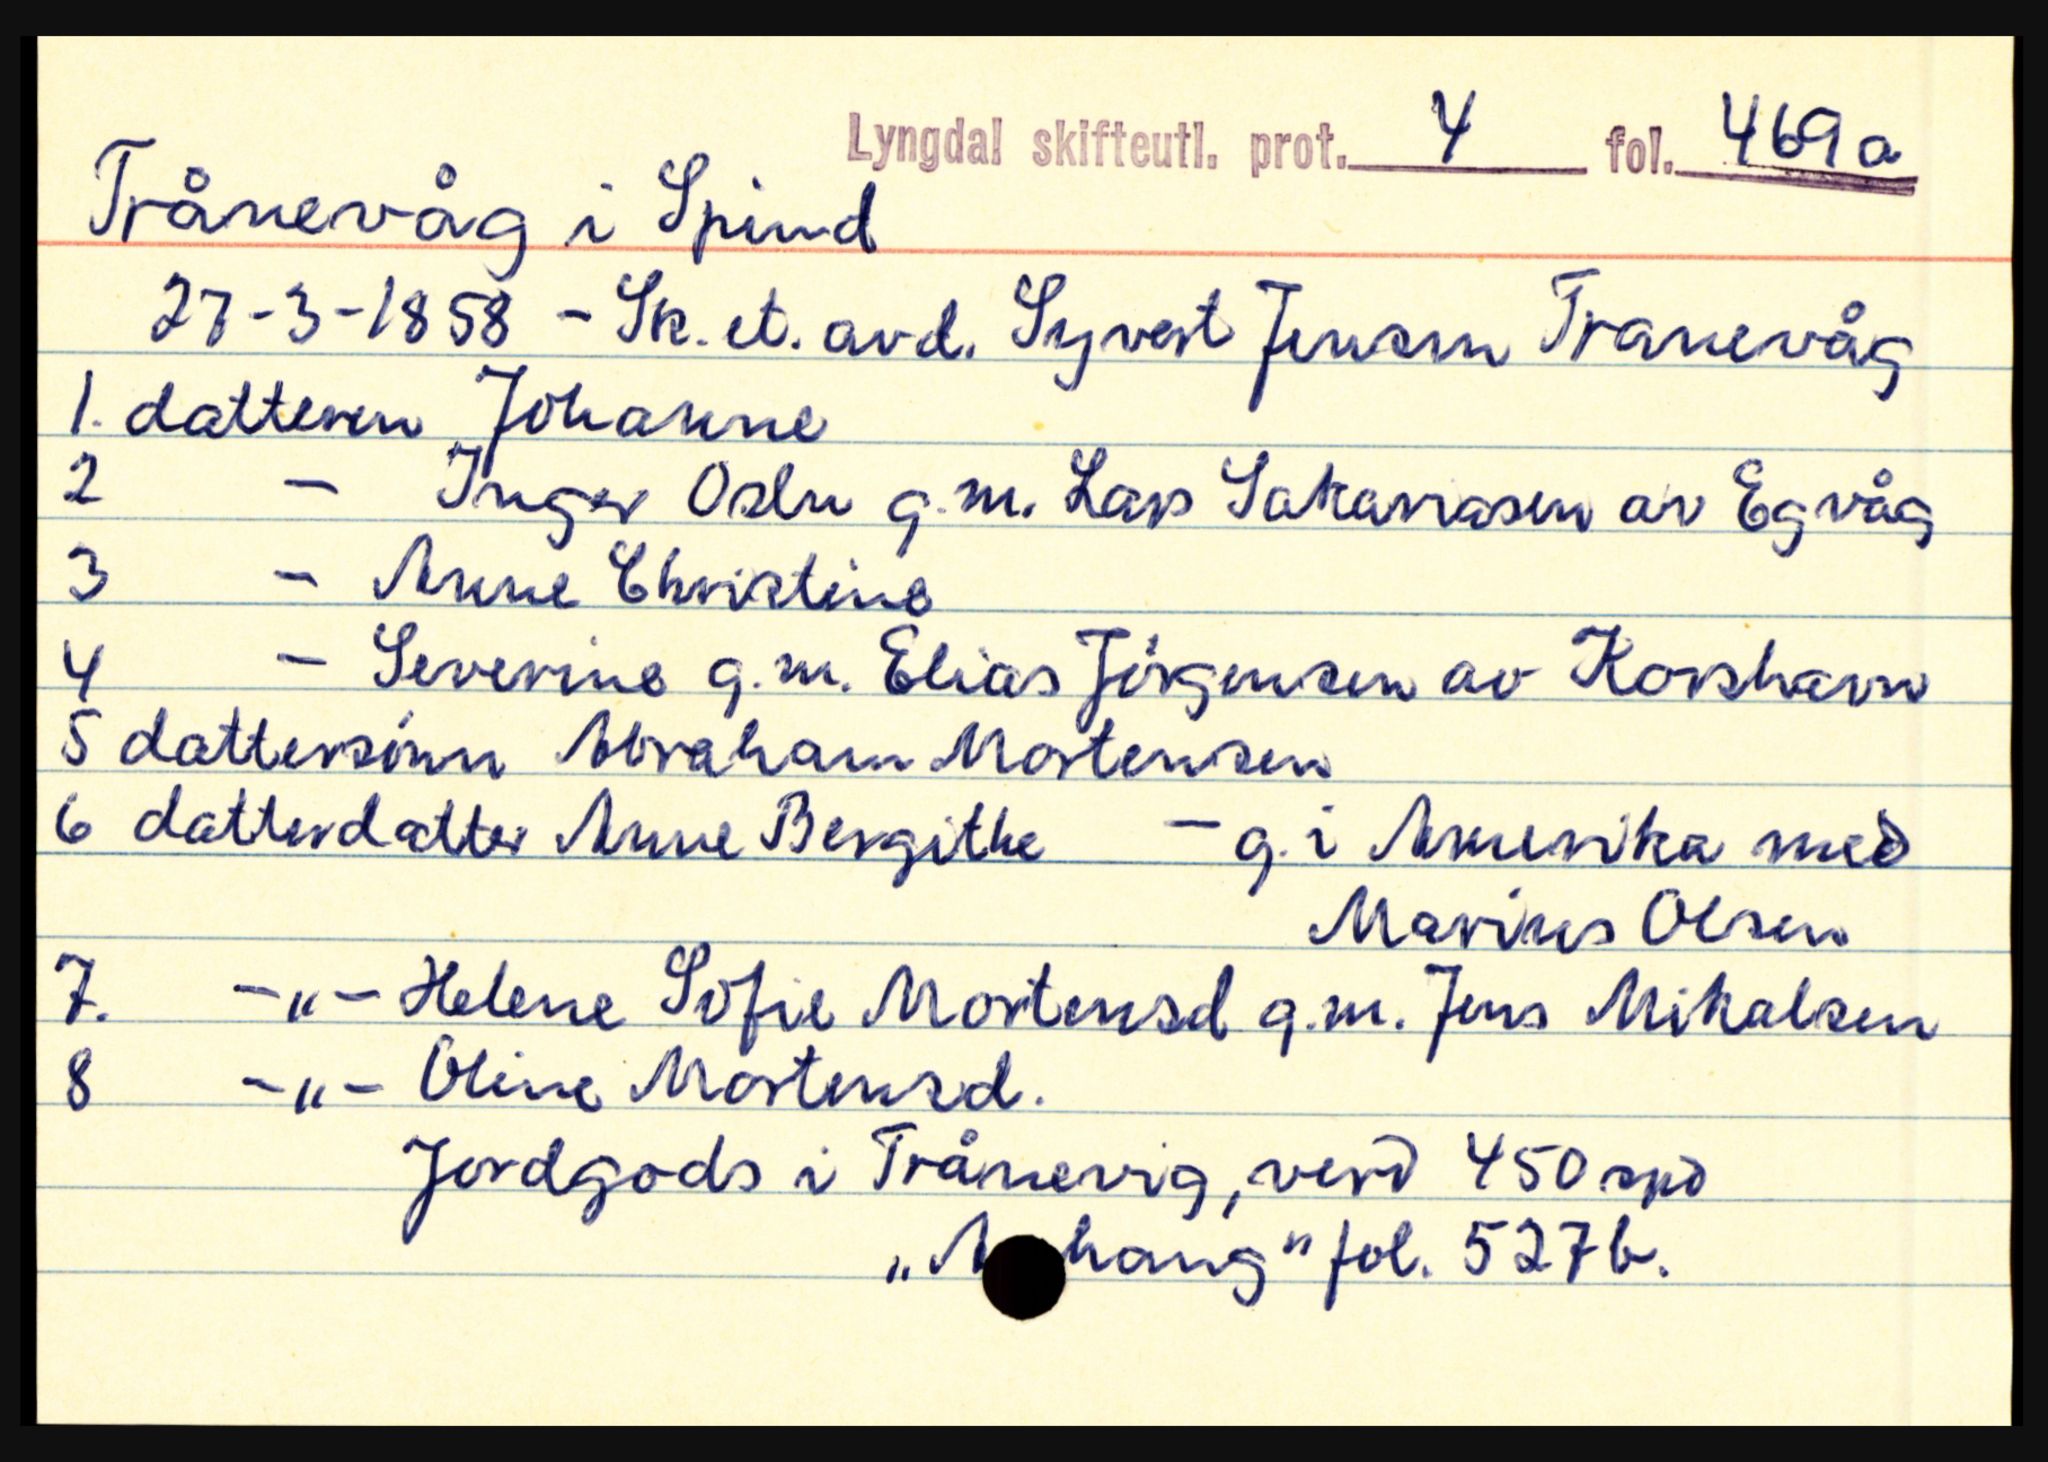 Lyngdal skifteutl. prot. 4 fol. 469a
Trånevåg i Spind
27-3-1858 - Sk. et. avd. Syvert Jensen Tranevåg
1. datteren Johanne
2 - Inger Osln g.m. Lars Sakariasen av Egvåg
3 - Anne Christine
4 - Severine g.m. Elias Jörgensen av Korshavn
5 dattersönn Abraham Mortensen
6 datterdatter Anne Bergithe - g. i Amerika med
Marius Olsen
7. -"- Helene Sofie Mortensd g.m. Jens Mikalsen
8 -"- Oline Mortensd.
Jordgods i Trånevig, verd 450 spd
„A hang" fol. 527b.